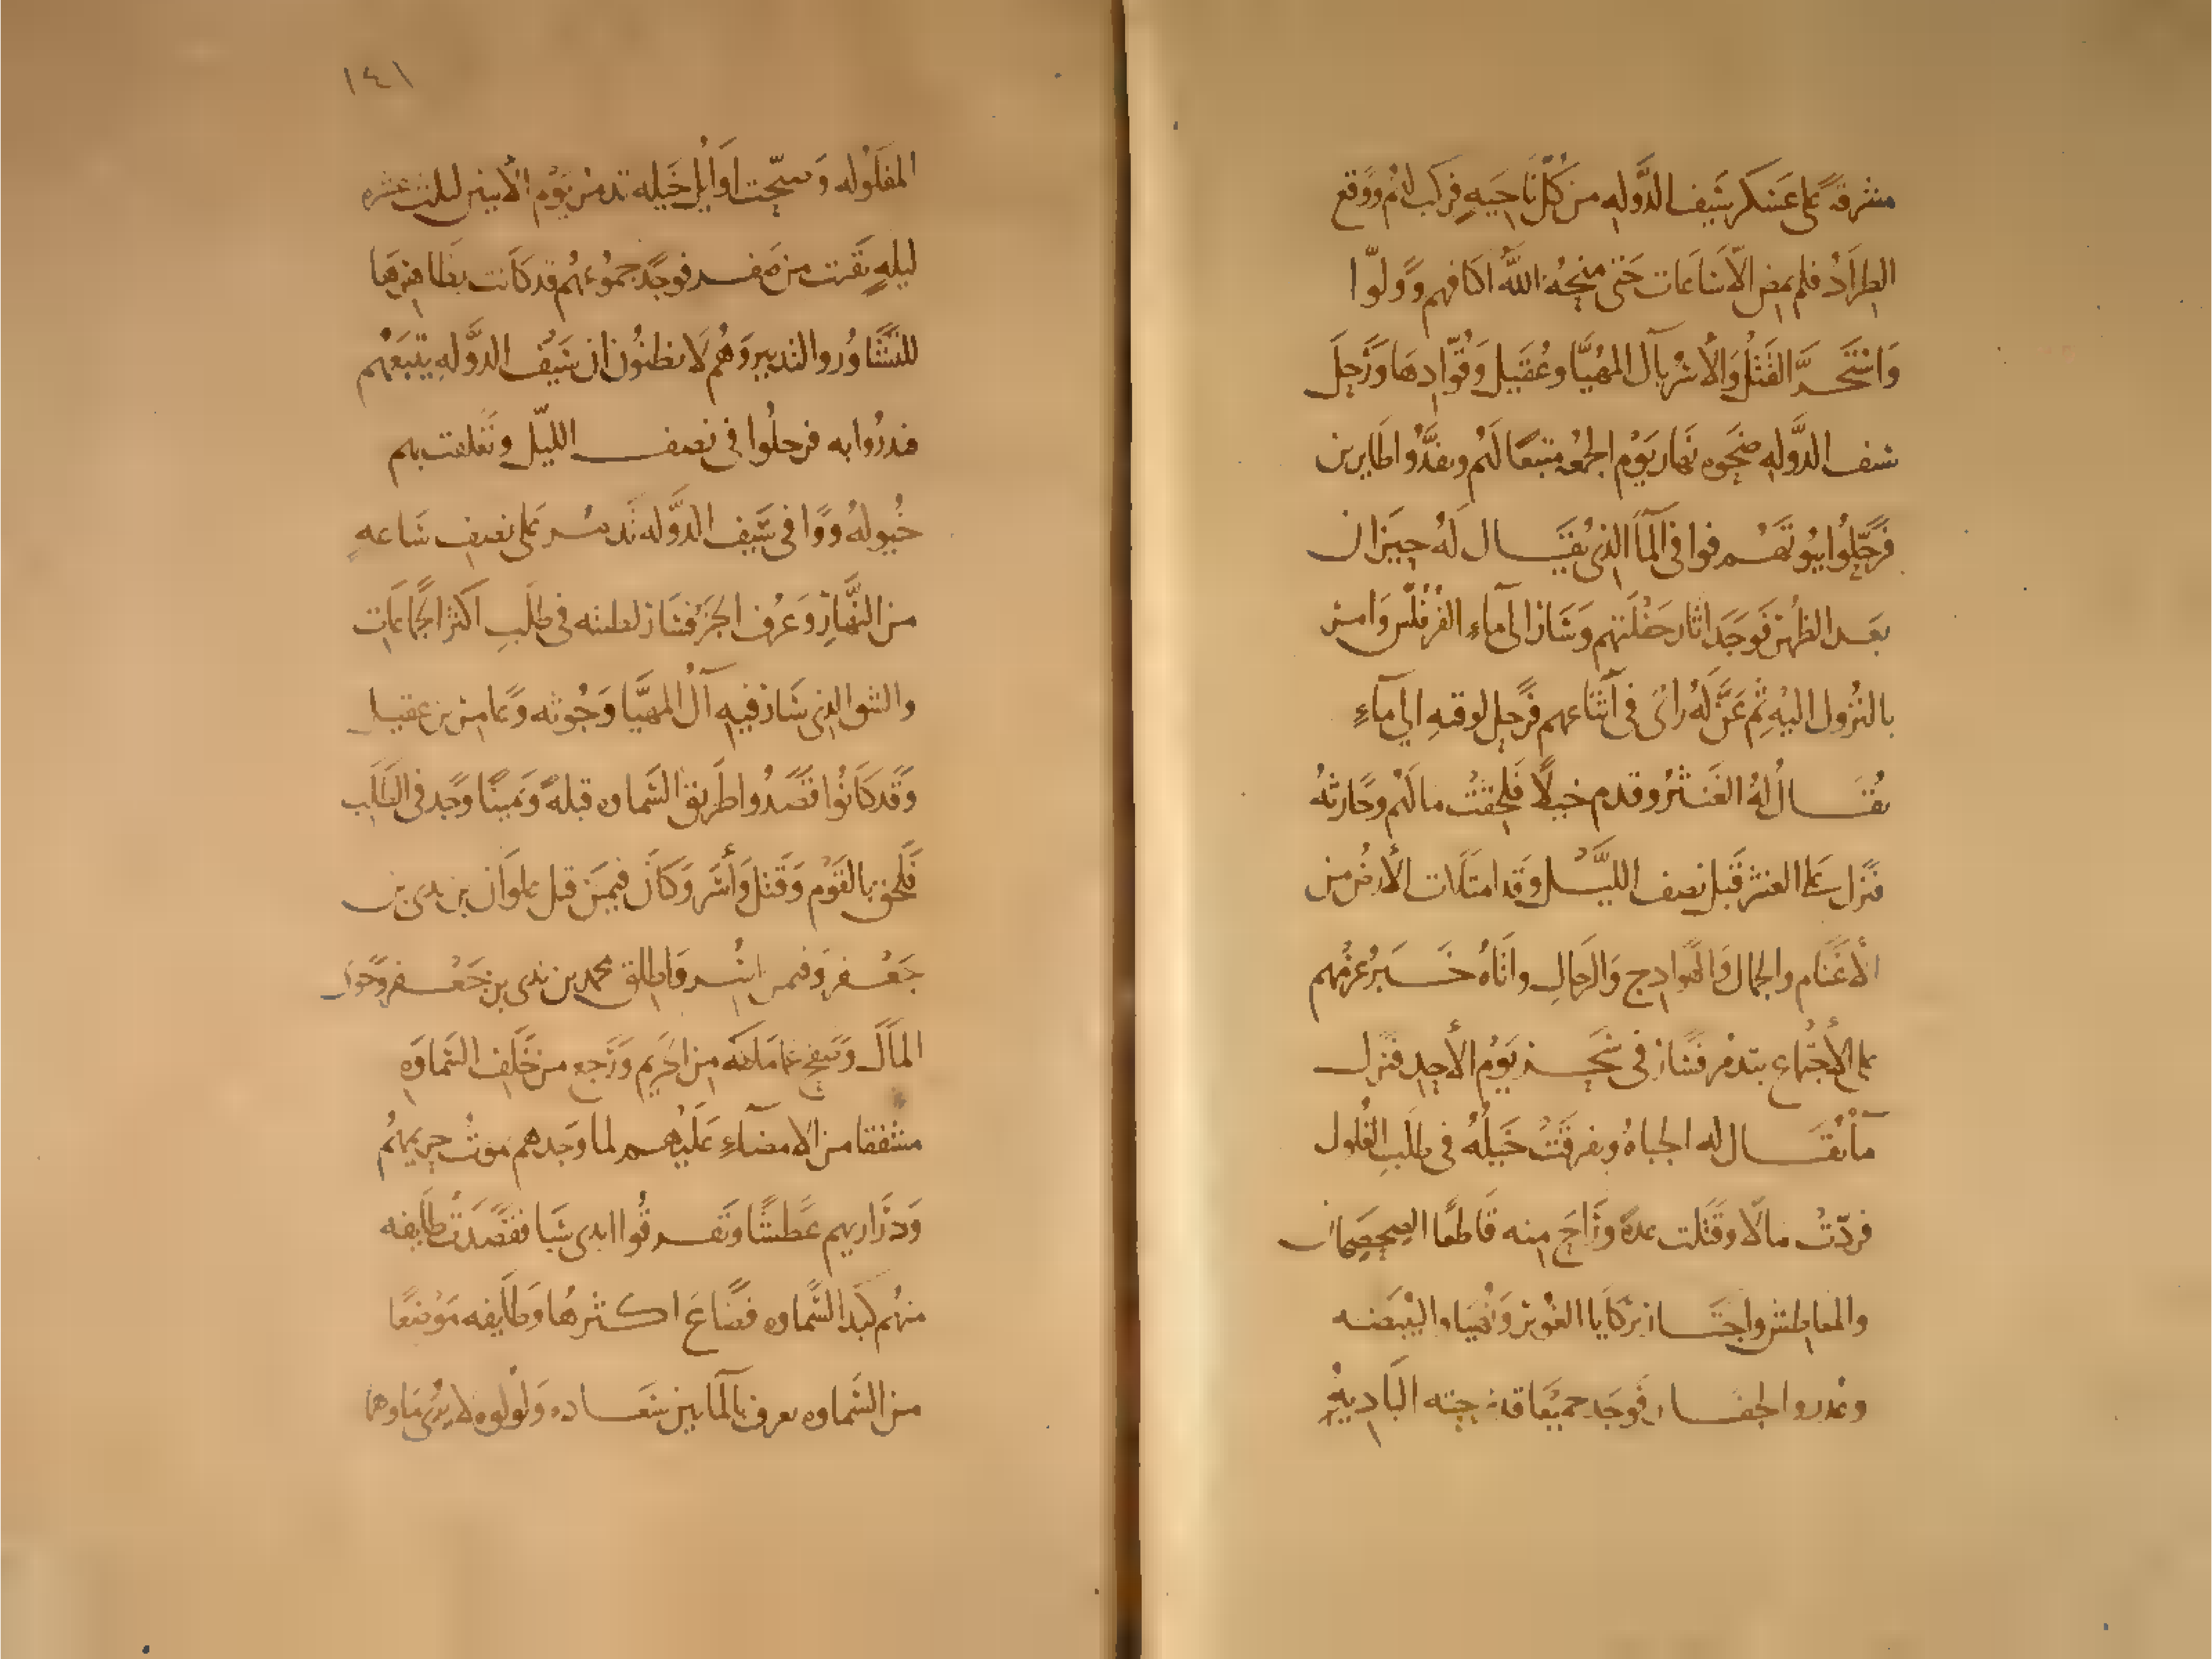 مشرقة على عسكر سيف الدَّوله من كل ناحيه فركب لهم ووقع
الطراد فلم يمض الا ساعات حتى منحه الله اكافهم وولوا
واستحر القتل والأسر بآل المهيَّا وعُقيل وقُوّادها ورحل
سيف الدَّوله ضحوه نهار يوم الجمعه متبعا لهم ونفذوا طايرين
فرحّلوا بيوتهم فوافى الما الذي يقال له حيزان
بعد الظهر فوجد اثار حفلتهم وسار الى ماء الفرقلس وامر
بالنزول اليه ثم عنَّ له رائ في اتباعهم فرحل لوقته الي ماءٍ
يقال له الغنثر وقدم خيلا فلحقت مالهم وحازته
فنزل على الغنثر قبل نصف الليل وقد امتلات الأرض من
الأغنام والجمال والهوادج والرحال واتاه خبر عزمهم
على الأجتماع بتدمر فسار في سحر يوم الأحد فنزل
مآ يقال له الجباه وتفرقت خيله في طلب الفلول
فردّت مالا وقتلت عدة وراح منه قاطعا الصحصحان
والمعاطش واجتاز بركايا الغوير ونهيا والبيضه
وغدر والجفار فوجد جميعا قد نزحته البادية
١٤١
المفلوله وصبّحت اوايل خيله تدمر يوم الأثنين لثلث عشره
ليله بقيت من صفر فوجد جموعهم قد كانت بظاهرها
للتشاور والتدبير وهم لا يظنون ان سيف الدَّوله يتبعهم
فنذروا به فرحلوا في نصف الليل وتعلقت بهم
خيوله ووافى سيف الدَّوله تدمر على نصف ساعه
من النهار وعرف الخبر فسار لطلبته في طلب اكثر الجماعات
والشق الذي سار فيه آل المهيَّا وحوثه وعامر بن عقيل
وقد كانوا قصدوا طريق السماوه قبلة ويمينا وجد في الطلب
فلحق بالقوم وقتل وأسر وكان فيمن قتل علوان بن ندى بن
جعفر وفيمن اسر واطلق محمد بن ندى بن جعفر وحوى
المال وصفح عما ملكه من الحريم ورجع من خلف السماوه
مشفقا من الامضاء عليهم لما وجدهم موت حريمهم
وذراريهم عطشا وتفرقوا ايدى سبا فقصدت طايفه
منهم كبد السماوه فضاع اكثرها وطايفه موضعا
من السماوه يعرف بالمابين سعاده ولولوه لا يرى ماوهما